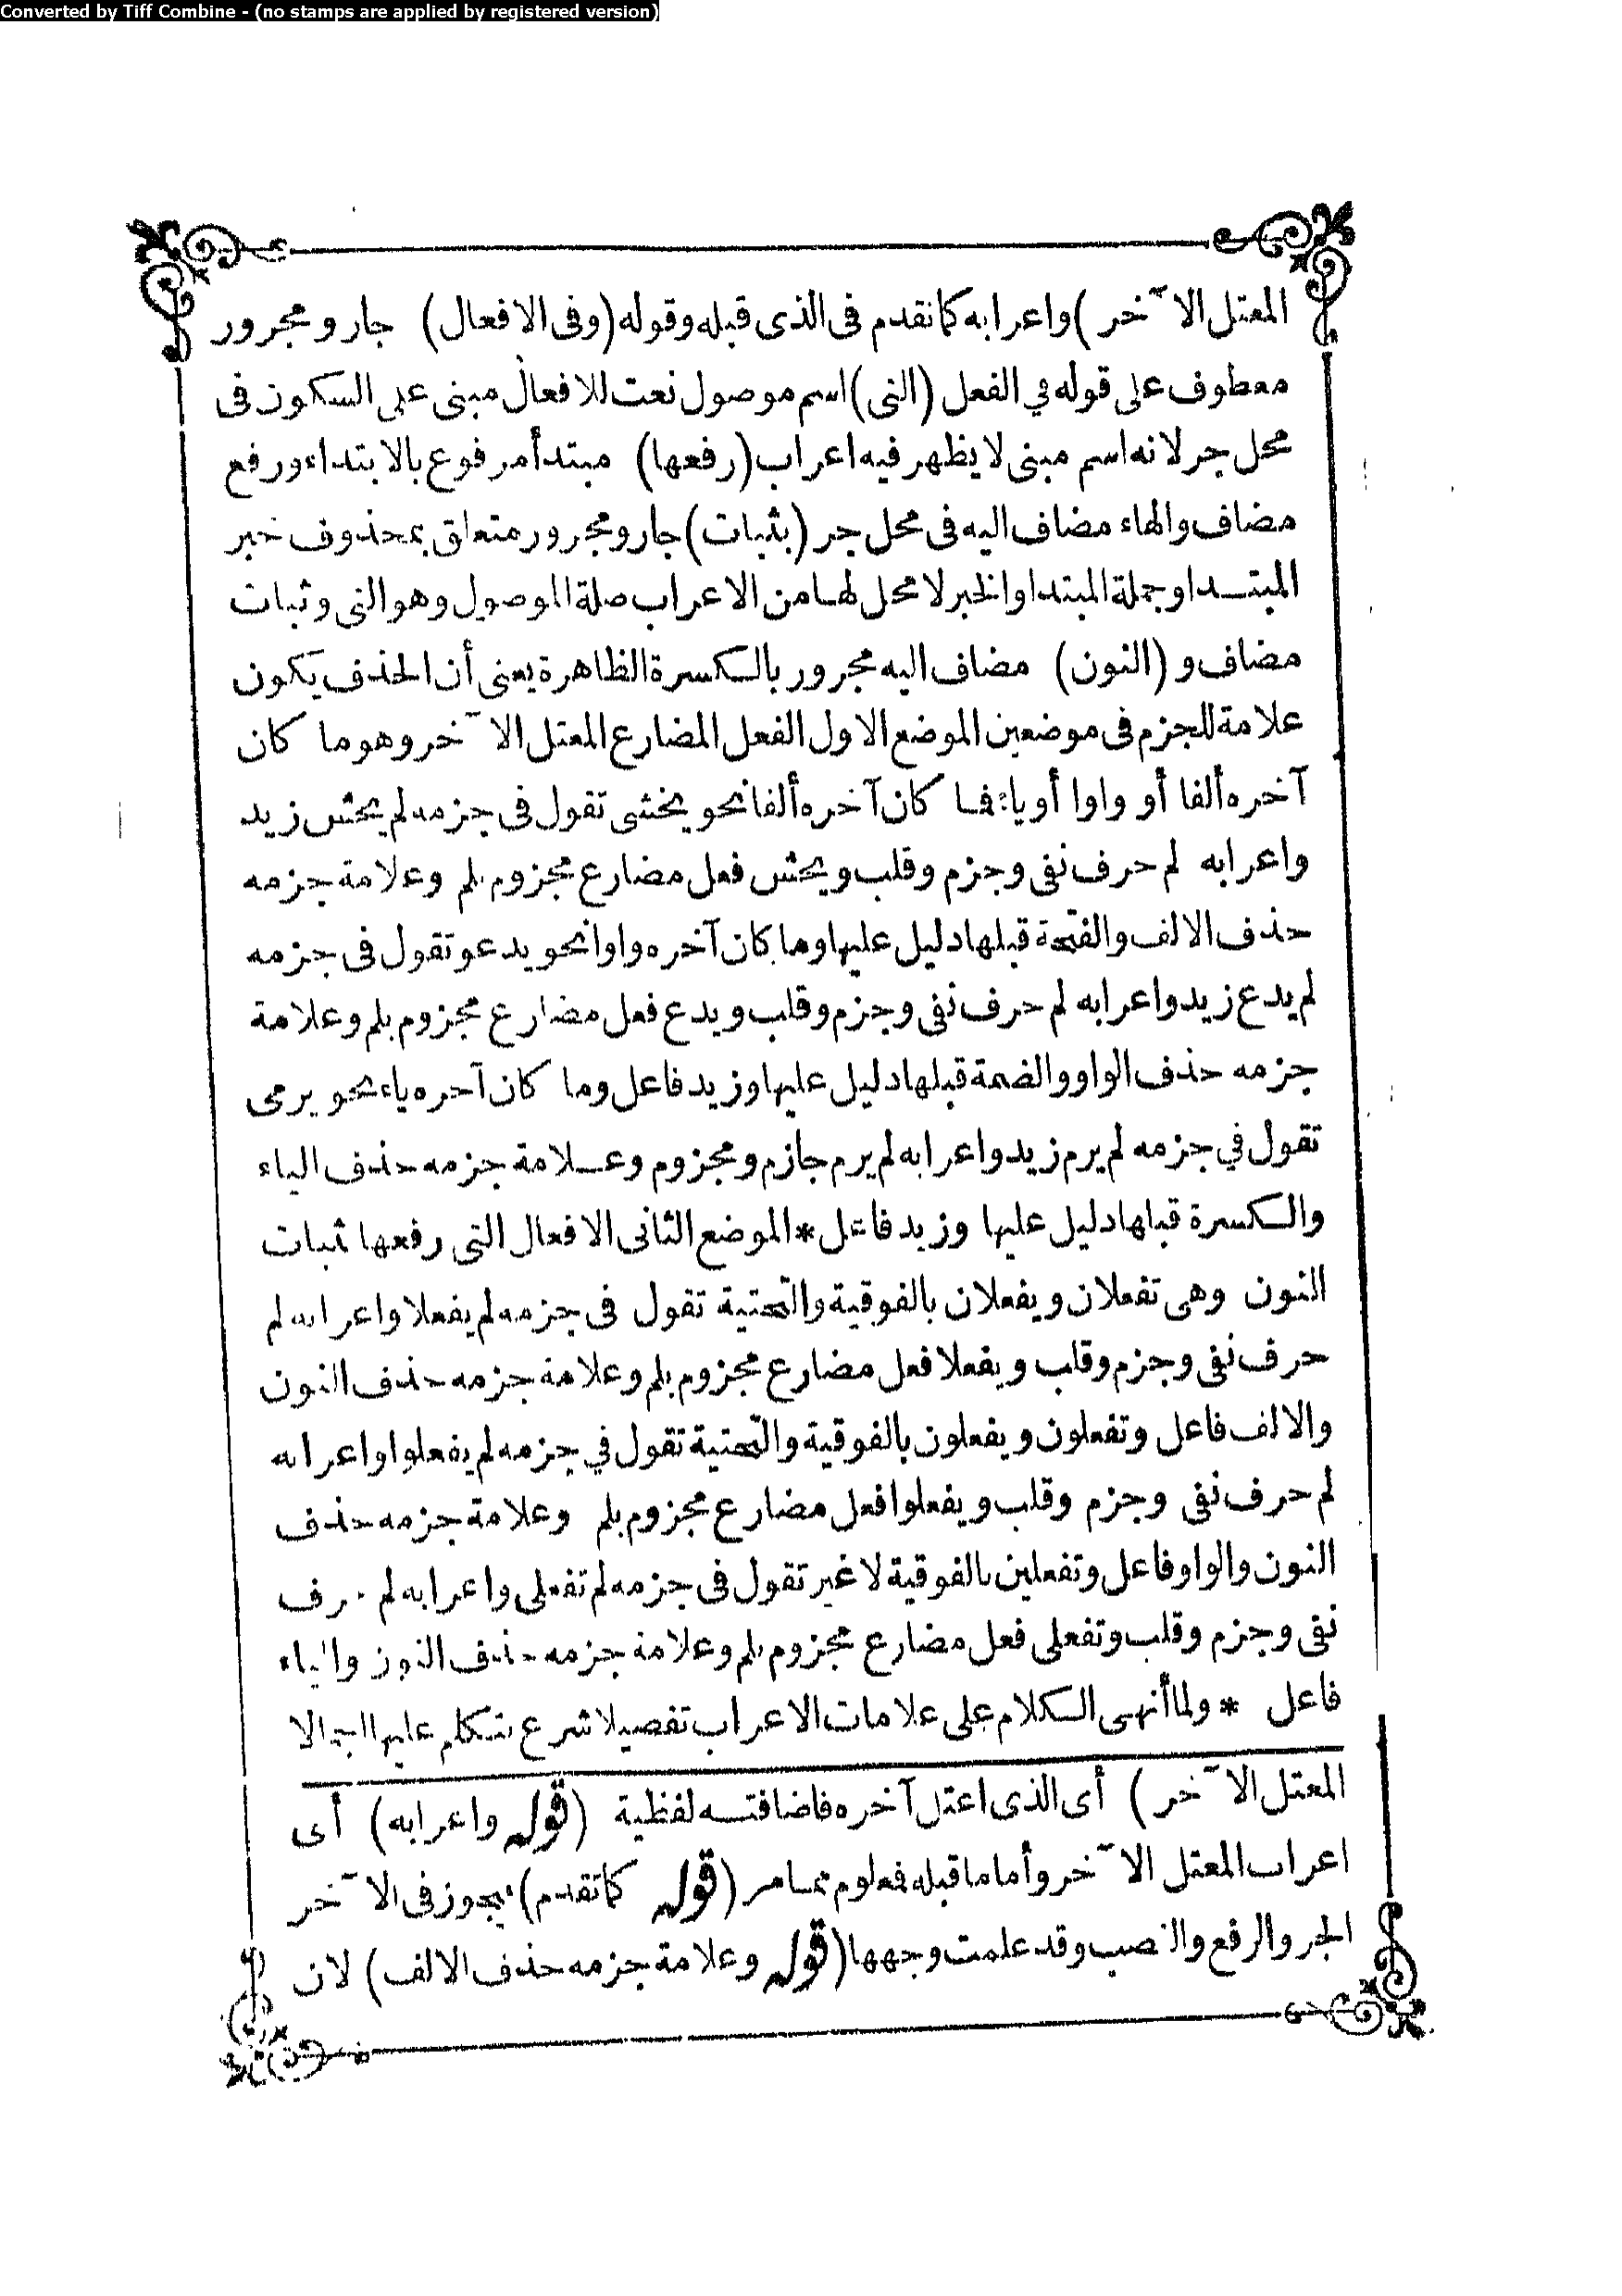 Converted by Tiff Combine - (no stamps are applied by registered version)
المعتل الآخر) واعرابه كما تقدم فى الذى قبله وقوله (وفى الافعال) جار ومجرور
معطوف على قوله في الفعل (التى) اسم موصول نعت للافعال مبنى على السكون فى
محل جر لانه اسم مبنى لا يظهر فيه اعراب (رفعها) مبتدأ مرفوع بالابتداء ورفع
مضاف والهاء مضاف اليه فى محل جر (بثبات) جار ومجرور متعلق بمحذوف خبر
المبتدا وجملة المبتدا والخبر لا محل لها من الاعراب صلة الموصول وهو التى وثبات
مضاف و (النون) مضاف اليه مجرور بالكسرة الظاهرة يعنى أن الحذف يكون
علامة للجزم فى موضعين الموضع الاول الفعل المضارع المعتل الآخر وهو ما كان
آخره ألفا أو واوا أو ياء فما كان آخره ألفا نحو يخشى تقول فى جزمه لم يخش زيد
واعرابه لم حرف نفى وجزم وقلب ويخش فعل مضارع مجزوم بلم وعلامة جزمه
حذف الالف والفتحة قبلها دليل عليها وما كان آخره واوا نحو يدعو تقول فى جزمه
لم يدع زيد واعرابه لم حرف نفى وجزم وقلب ويدع فعل مضارع مجزوم بلم وعلامة
جزمه حذف الواو والضمة قبلها دليل عليها وزيد فاعل وما كان آخره ياء نحو يرمى
تقول في جزمه لم يرم زيد واعرابه لم يرم جازم ومجزوم وعلامة جزمه حذف الياء
والكسرة قبلها دليل عليها وزيد فاعل * الموضع الثانى الافعال التى رفعها ثبات
النون وهى تفعلان ويفعلان بالفوقية والتحتية تقول فى جزمه لم يفعلا واعرابه لم
حرف نفى وجزم وقلب ويفعلا فعل مضارع مجزوم بلم وعلامة جزمه حذف النون
والالف فاعل وتفعلون ويفعلون بالفوقية والتحتية تقول في جزمه لم يفعلوا واعرابه
لم حرف نفى وجزم وقلب ويفعلوا فعل مضارع مجزوم بلم وعلامة جزمه حذف
النون والواو فاعل وتفعلين بالفوقية لا غير تقول فى جزمه لم تفعلى واعرابه لم حرف
نفى وجزم وقلب وتفعلى فعل مضارع مجزوم بلم وعلامة جزمه حذف النون والياء
فاعل * ولما أنهى الكلام على علامات الاعراب تفصيلا شرع يتكلم عليها اجمالا
المعتل الآخر) أى الذى اعتل آخره فاضافته لفظية (قوله واعرابه) أى
اعراب المعتل الآخر وأما ما قبله فمعلوم مما مر (قوله كما تقدم) يجوز فى الآخر
الجر والرفع والنصب وقد علمت وجهها (قوله وعلامة جزمه حذف الالف) لان